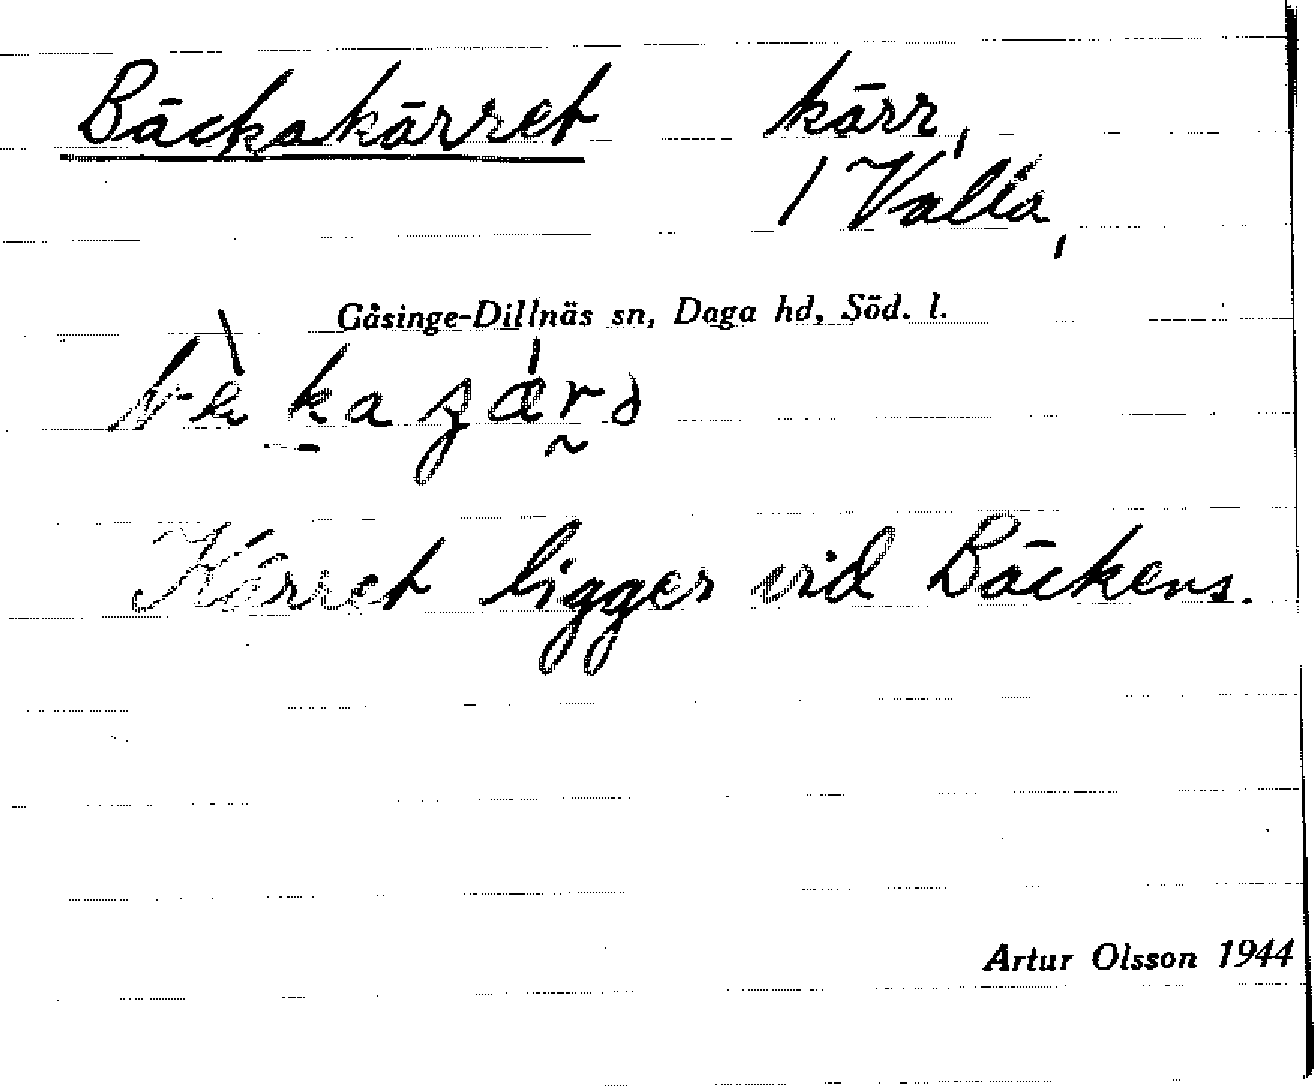 Bäckakärret kärr,
/ Valla,
Gåsinge-Dillnäs sn, Daga hd, Söd. l.
Kärret ligger vid Bäckens.
Artur Olsson 1944